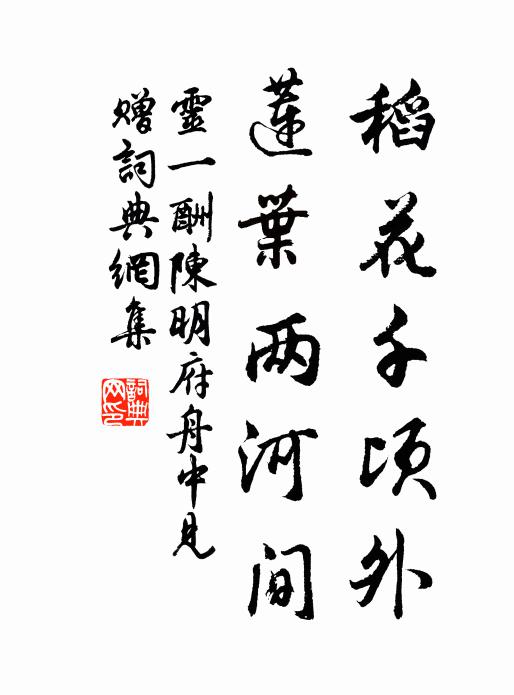 稻花千頃外
蓮葉兩河間
靈一酬陳明府舟中見
贈詞典網集
詞典网印